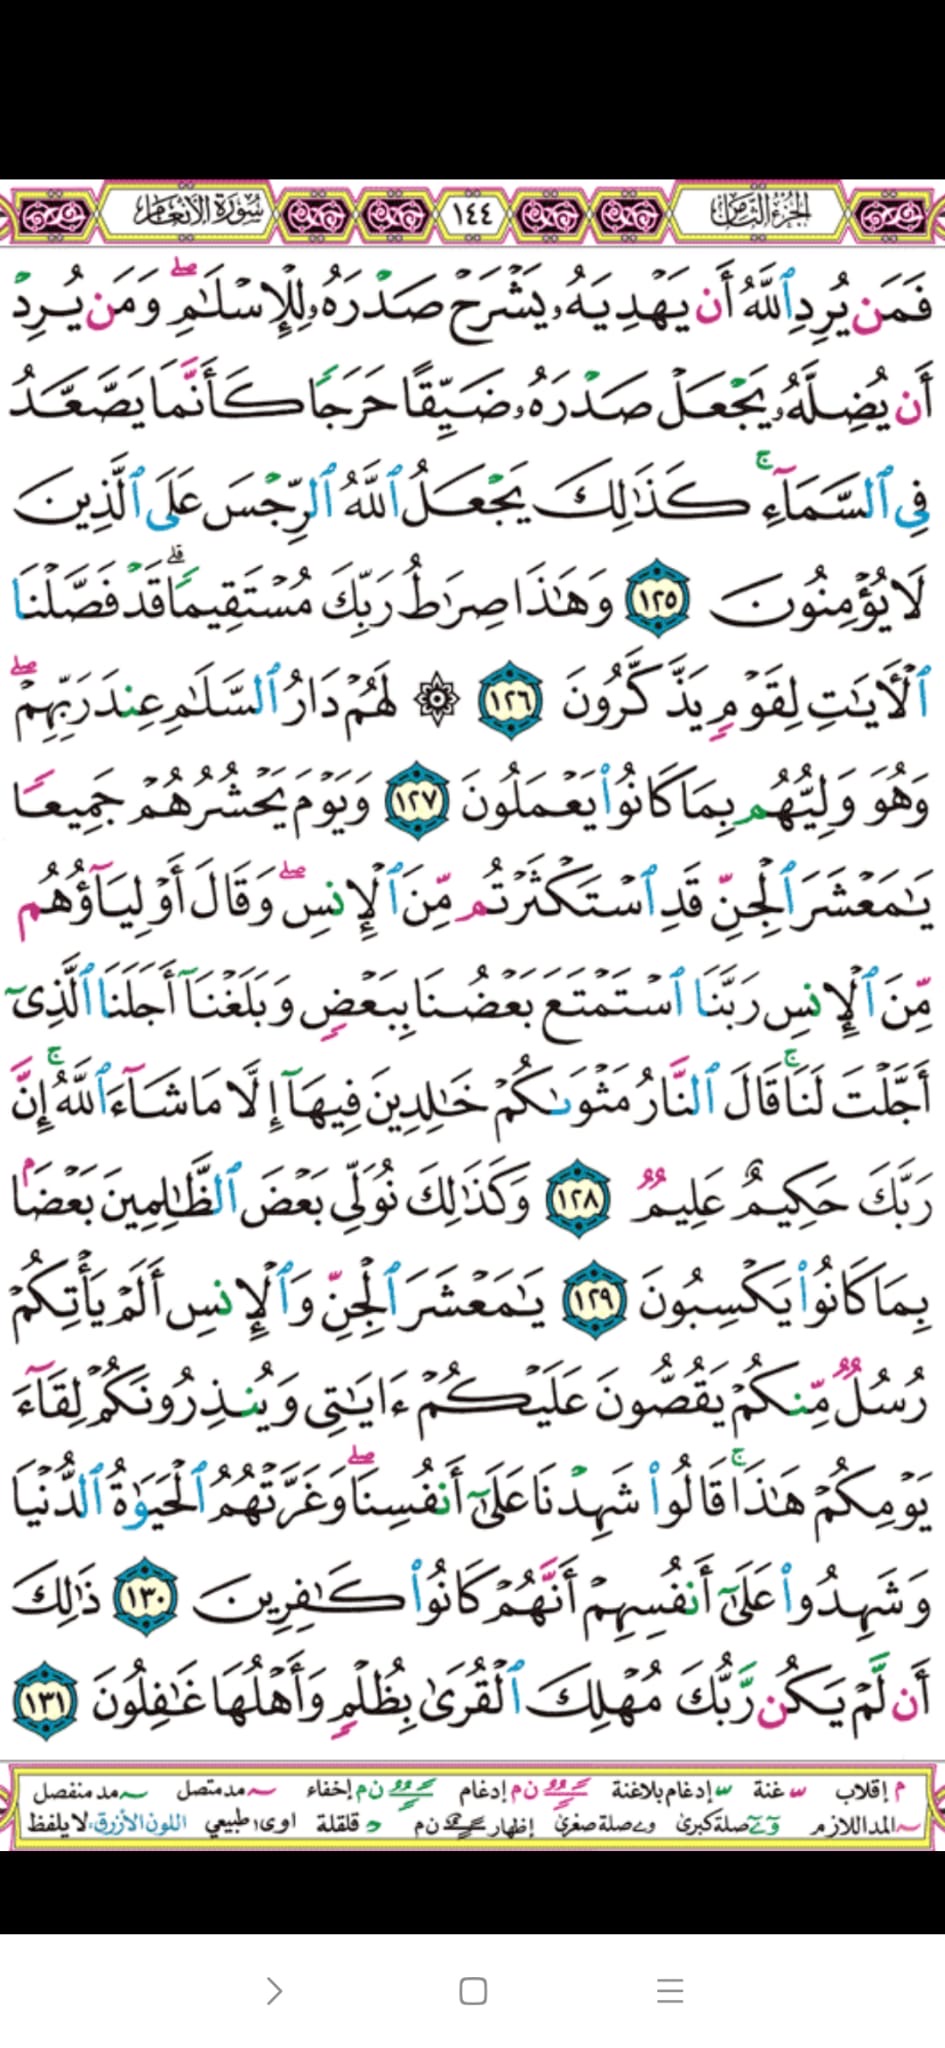 الجزء الثامن
١٤٤
سورة الأنعام
فَمَن يُرِدِ ٱللَّهُ أَن يَهْدِيَهُۥ يَشْرَحْ صَدْرَهُۥ لِلْإِسْلَٰمِ ۖ وَمَن يُرِدْ
أَن يُضِلَّهُۥ يَجْعَلْ صَدْرَهُۥ ضَيِّقًا حَرَجًا كَأَنَّمَا يَصَّعَّدُ
فِى ٱلسَّمَآءِ ۚ كَذَٰلِكَ يَجْعَلُ ٱللَّهُ ٱلرِّجْسَ عَلَى ٱلَّذِينَ
لَا يُؤْمِنُونَ ١٢٥ وَهَٰذَا صِرَٰطُ رَبِّكَ مُسْتَقِيمًا ۗ قَدْ فَصَّلْنَا
ٱلْـَٔايَٰتِ لِقَوْمٍ يَذَّكَّرُونَ ١٢٦ ۞ لَهُمْ دَارُ ٱلسَّلَٰمِ عِندَ رَبِّهِمْ ۖ
وَهُوَ وَلِيُّهُم بِمَا كَانُوا۟ يَعْمَلُونَ ١٢٧ وَيَوْمَ يَحْشُرُهُمْ جَمِيعًا
يَٰمَعْشَرَ ٱلْجِنِّ قَدِ ٱسْتَكْثَرْتُم مِّنَ ٱلْإِنسِ ۖ وَقَالَ أَوْلِيَآؤُهُم
مِّنَ ٱلْإِنسِ رَبَّنَا ٱسْتَمْتَعَ بَعْضُنَا بِبَعْضٍ وَبَلَغْنَآ أَجَلَنَا ٱلَّذِىٓ
أَجَّلْتَ لَنَا ۚ قَالَ ٱلنَّارُ مَثْوَىٰكُمْ خَٰلِدِينَ فِيهَآ إِلَّا مَا شَآءَ ٱللَّهُ ۚ إِنَّ
رَبَّكَ حَكِيمٌ عَلِيمٌ ١٢٨ وَكَذَٰلِكَ نُوَلِّى بَعْضَ ٱلظَّٰلِمِينَ بَعْضًۢا
بِمَا كَانُوا۟ يَكْسِبُونَ ١٢٩ يَٰمَعْشَرَ ٱلْجِنِّ وَٱلْإِنسِ أَلَمْ يَأْتِكُمْ
رُسُلٌ مِّنكُمْ يَقُصُّونَ عَلَيْكُمْ ءَايَٰتِى وَيُنذِرُونَكُمْ لِقَآءَ
يَوْمِكُمْ هَٰذَا ۚ قَالُوا۟ شَهِدْنَا عَلَىٰٓ أَنفُسِنَا ۖ وَغَرَّتْهُمُ ٱلْحَيَوٰةُ ٱلدُّنْيَا
وَشَهِدُوا۟ عَلَىٰٓ أَنفُسِهِمْ أَنَّهُمْ كَانُوا۟ كَٰفِرِينَ ١٣٠ ذَٰلِكَ
أَن لَّمْ يَكُن رَّبُّكَ مُهْلِكَ ٱلْقُرَىٰ بِظُلْمٍ وَأَهْلُهَا غَٰفِلُونَ ١٣١
م إقلاب غنة إدغام بلاغنة ن م إدغام ن م إخفاء مد متصل مد منفصل
المد اللازم صلة كبرى صلة صغرى إظهار ن م قلقلة اوى طبيعي اللون الأزرق: لا يلفظ